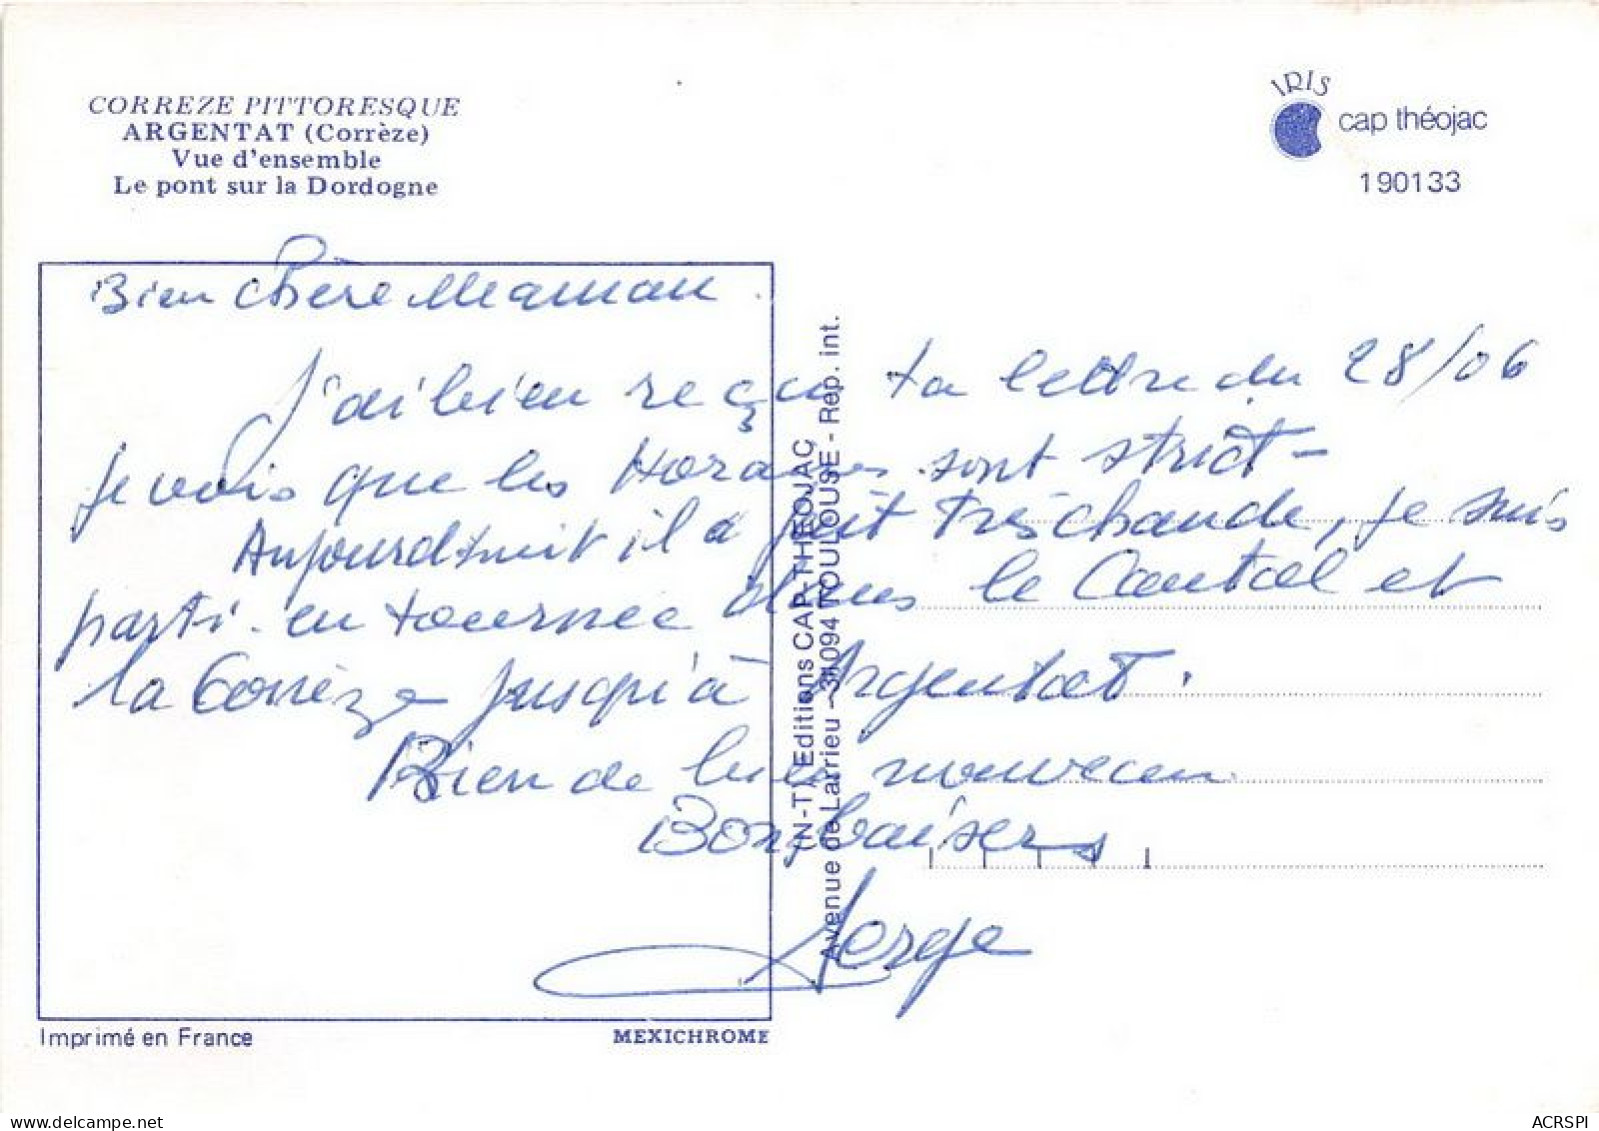 CORREZE PITTORESQUE
ARGENTAT (Corrèze)
Vue d'ensemble
Le pont sur la Dordogne
IRIS
cap théojac
190133
Bien chère Maman
J'ai bien reçu ta lettre du 28/06
je vois que les Horaires sont strict-
Aujourd'huit il a fait très chaude, je suis
parti en tournee dans le Cantal et
la Corrèze jusqu'à Argentat.
Bien de nouveau
Bons baisers
Serge
(N-T) Editions CAP-THEOJAC
Avenue de Larrieu - 31094 TOULOUSE - Rep. int.
Imprimé en France
MEXICHROME
delcampe.net
ACRSPI